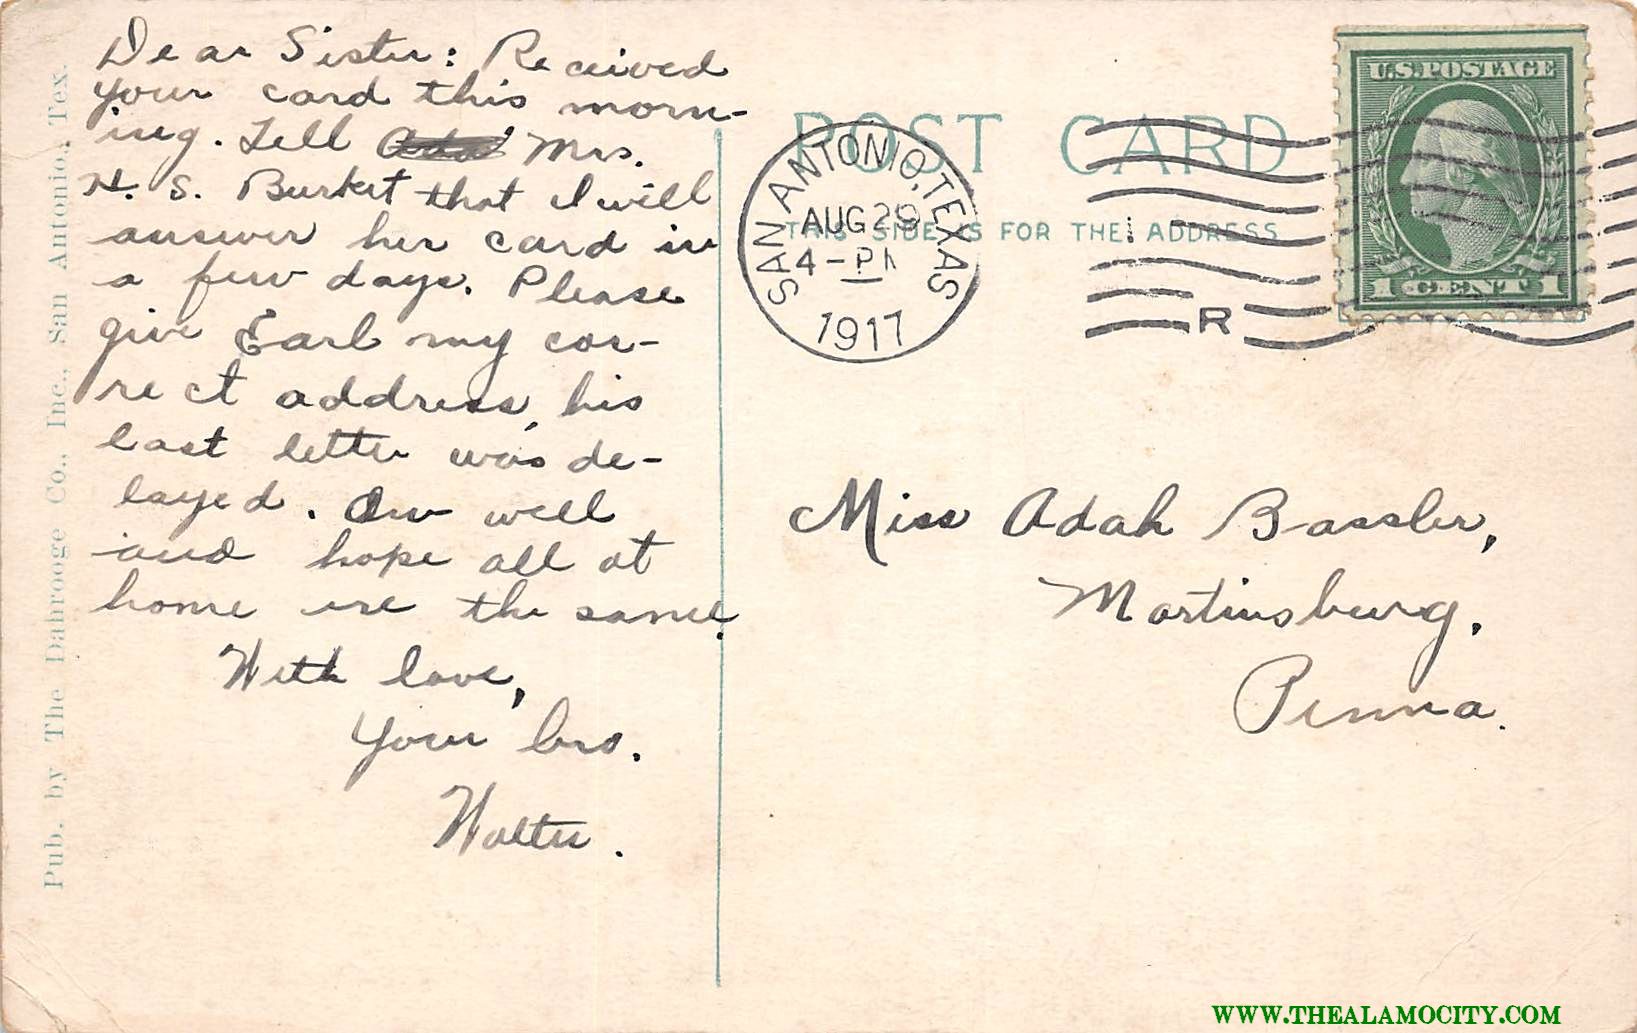 Dear Sister: Received
your card this morn-
ing. Tell Mrs.
H. S. Burket that I will
answer her card in
a few days. Please
give Earl my cor-
rect address, his
last letter was de-
layed. Am well
and hope all at
home are the same.
With love,
Your bro.
Walter.
Pub. by The Dahrooge Co., Inc., San Antonio, Tex.
POST CARD
THIS SIDE IS FOR THE ADDRESS
SAN ANTONIO, TEXAS
AUG 29
4-PM
1917
R
U.S. POSTAGE
1 CENT 1
Miss Adah Bassler,
Martinsburg,
Penna.
WWW.THEALAMOCITY.COM